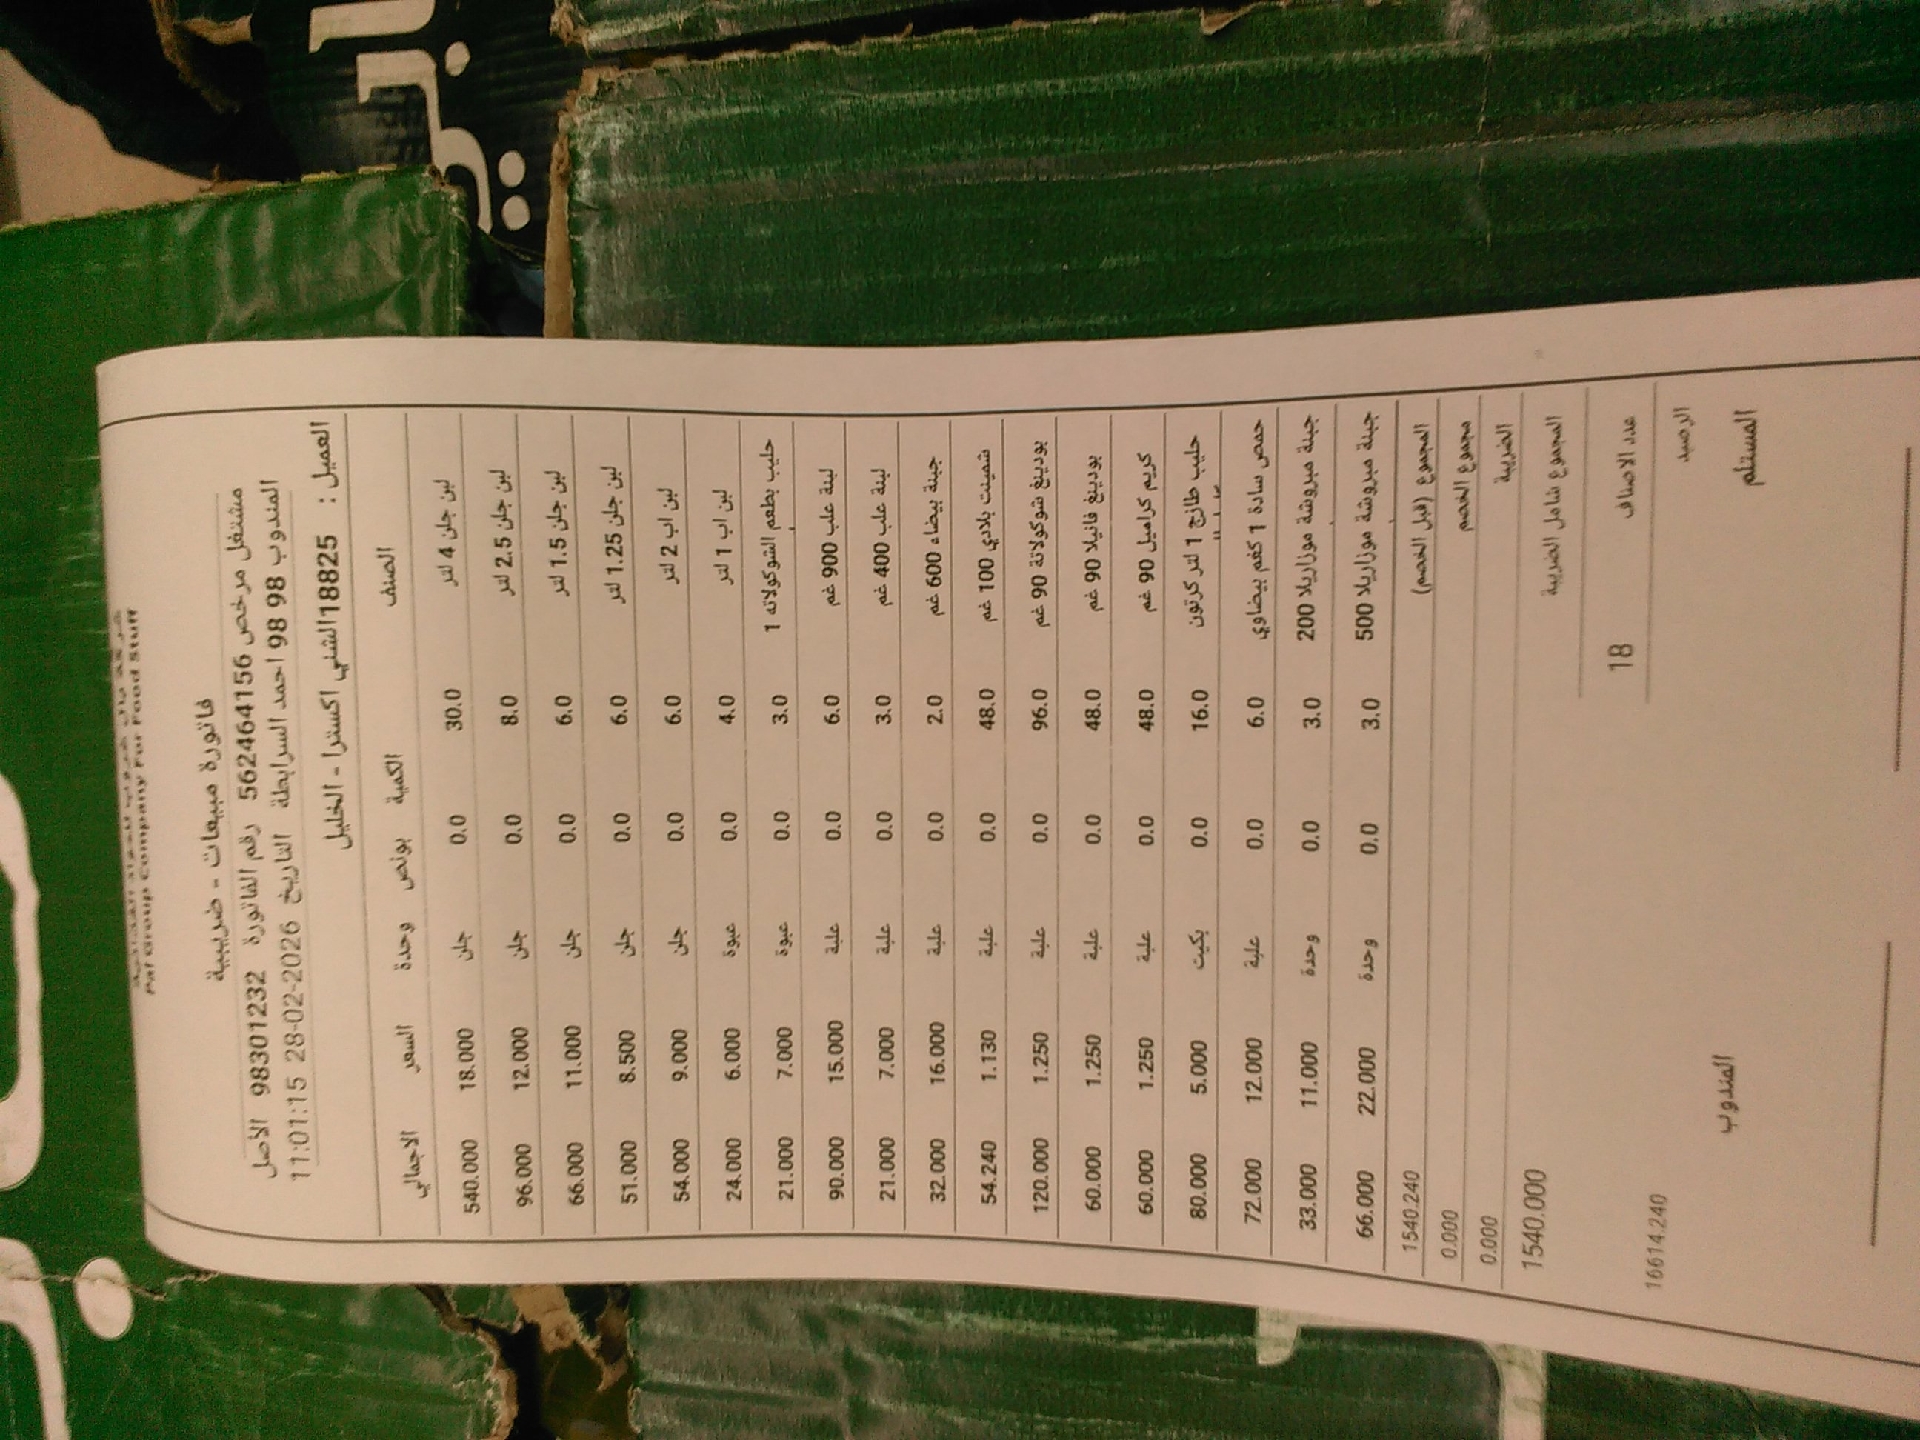 Pal Group Company For Food Stuff
فاتورة مبيعات - ضريبية
مشتغل مرخص 562464156 رقم الفاتورة 98301232 الأصل
المندوب 98 98 احمد السرابطة التاريخ 28-02-2026 11:01:15
العميل : 18825 الشني اكسترا - الخليل
الصنف الكمية بونص وحدة السعر الاجمالي
لبن جلن 4 لتر 30.0 0.0 جلن 18.000 540.000
لبن جلن 2.5 لتر 8.0 0.0 جلن 12.000 96.000
لبن جلن 1.5 لتر 6.0 0.0 جلن 11.000 66.000
لبن جلن 1.25 لتر 6.0 0.0 جلن 8.500 51.000
لبن اب 2 لتر 6.0 0.0 جلن 9.000 54.000
لبن اب 1 لتر 4.0 0.0 عبوة 6.000 24.000
حليب بطعم الشوكولاته 1 3.0 0.0 عبوة 7.000 21.000
لبنة علب 900 غم 6.0 0.0 علبة 15.000 90.000
لبنة علب 400 غم 3.0 0.0 علبة 7.000 21.000
جبنة بيضاء 600 غم 2.0 0.0 علبة 16.000 32.000
شمينت بلادي 100 غم 48.0 0.0 علبة 1.130 54.240
بودينغ شوكولاتة 90 غم 96.0 0.0 علبة 1.250 120.000
بودينغ فانيلا 90 غم 48.0 0.0 علبة 1.250 60.000
كريم كراميل 90 غم 48.0 0.0 علبة 1.250 60.000
حليب طازج 1 لتر كرتون 16.0 0.0 بكيت 5.000 80.000
حمص سادة 1 كغم بيضاوي 6.0 0.0 علبة 12.000 72.000
جبنة مبروشة موزاريلا 200 3.0 0.0 وحدة 11.000 33.000
جبنة مبروشة موزاريلا 500 3.0 0.0 وحدة 22.000 66.000
المجموع (قبل الخصم) 1540.240
مجموع الخصم 0.000
الضريبة 0.000
المجموع شامل الضريبة 1540.000
عدد الاصناف 18
الرصيد 16614.240
المستلم المندوب